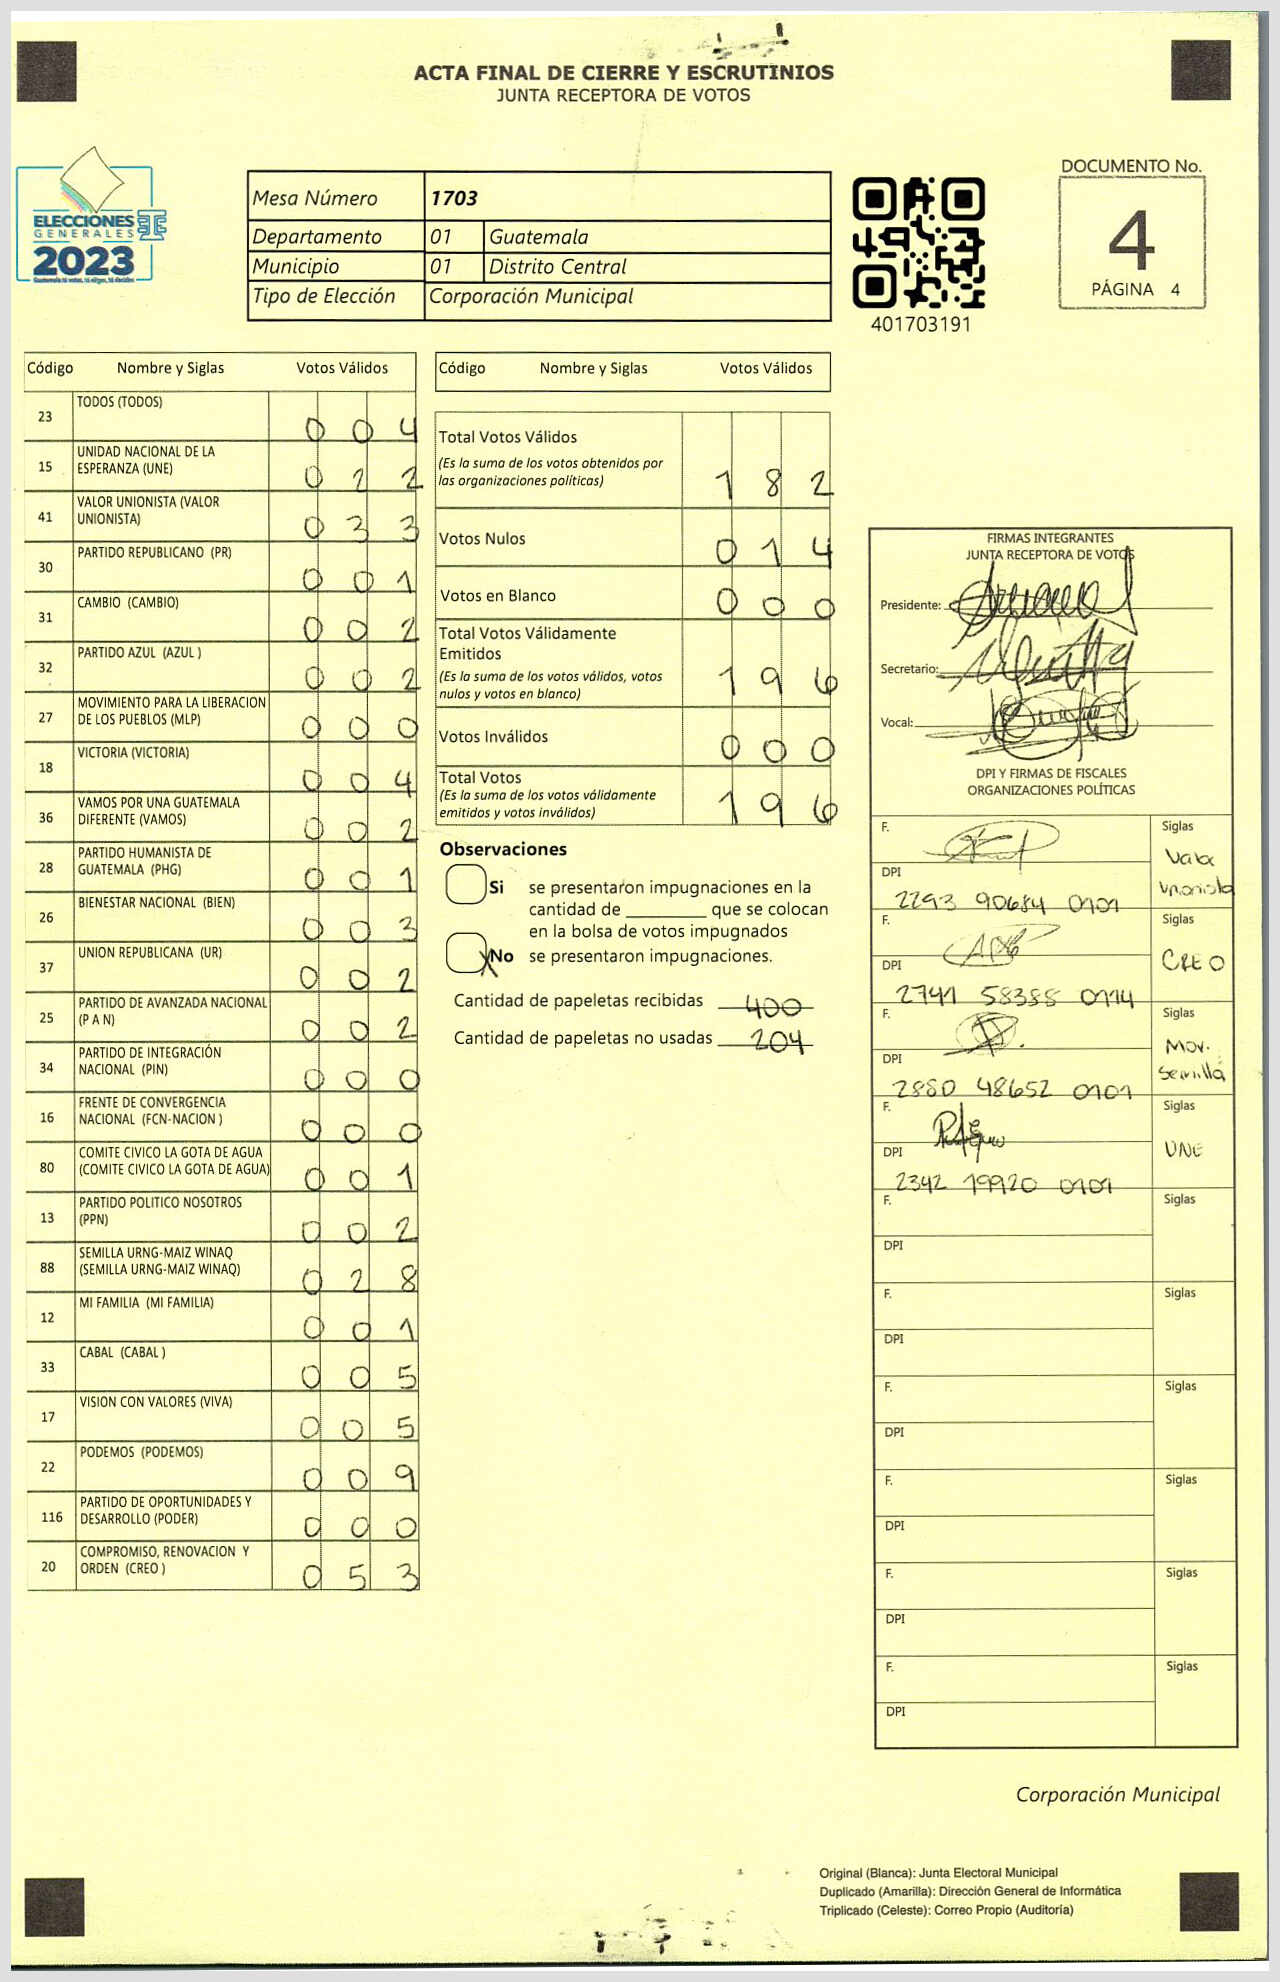 ACTA FINAL DE CIERRE Y ESCRUTINIOS
JUNTA RECEPTORA DE VOTOS
ELECCIONES
GENERALES
2023
Mesa Número 1703
Departamento 01 Guatemala
Municipio 01 Distrito Central
Tipo de Elección Corporación Municipal
401703191
DOCUMENTO No.
4
PÁGINA 4
Código Nombre y Siglas Votos Válidos
23 TODOS (TODOS) 0 0 4
15 UNIDAD NACIONAL DE LA
ESPERANZA (UNE) 0 2 2
41 VALOR UNIONISTA (VALOR
UNIONISTA) 0 3 3
30 PARTIDO REPUBLICANO (PR) 0 0 1
31 CAMBIO (CAMBIO) 0 0 2
32 PARTIDO AZUL (AZUL ) 0 0 2
27 MOVIMIENTO PARA LA LIBERACION
DE LOS PUEBLOS (MLP) 0 0 0
18 VICTORIA (VICTORIA) 0 0 4
36 VAMOS POR UNA GUATEMALA
DIFERENTE (VAMOS) 0 0 2
28 PARTIDO HUMANISTA DE
GUATEMALA (PHG) 0 0 1
26 BIENESTAR NACIONAL (BIEN) 0 0 3
37 UNION REPUBLICANA (UR) 0 0 2
25 PARTIDO DE AVANZADA NACIONAL
(P A N) 0 0 2
34 PARTIDO DE INTEGRACIÓN
NACIONAL (PIN) 0 0 0
16 FRENTE DE CONVERGENCIA
NACIONAL (FCN-NACION ) 0 0 0
80 COMITE CIVICO LA GOTA DE AGUA
(COMITE CIVICO LA GOTA DE AGUA) 0 0 1
13 PARTIDO POLITICO NOSOTROS
(PPN) 0 0 2
88 SEMILLA URNG-MAIZ WINAQ
(SEMILLA URNG-MAIZ WINAQ) 0 2 8
12 MI FAMILIA (MI FAMILIA) 0 0 1
33 CABAL (CABAL ) 0 0 5
17 VISION CON VALORES (VIVA) 0 0 5
22 PODEMOS (PODEMOS) 0 0 9
116 PARTIDO DE OPORTUNIDADES Y
DESARROLLO (PODER) 0 0 0
20 COMPROMISO, RENOVACION Y
ORDEN (CREO ) 0 5 3
Código Nombre y Siglas Votos Válidos
Total Votos Válidos
(Es la suma de los votos obtenidos por
las organizaciones políticas) 1 8 2
Votos Nulos 0 1 4
Votos en Blanco 0 0 0
Total Votos Válidamente
Emitidos
(Es la suma de los votos válidos, votos
nulos y votos en blanco) 1 9 6
Votos Inválidos 0 0 0
Total Votos
(Es la suma de los votos válidamente
emitidos y votos inválidos) 1 9 6
Observaciones
Si se presentaron impugnaciones en la
cantidad de ________ que se colocan
en la bolsa de votos impugnados
X No se presentaron impugnaciones.
Cantidad de papeletas recibidas 400
Cantidad de papeletas no usadas 204
FIRMAS INTEGRANTES
JUNTA RECEPTORA DE VOTOS
Presidente:
Secretario:
Vocal:
DPI Y FIRMAS DE FISCALES
ORGANIZACIONES POLÍTICAS
F. Siglas
Valor
Unionista
DPI
2293 90684 0101
F. Siglas
CREO
DPI
2741 58388 0114
F. Siglas
Mov.
Semilla
DPI
2880 48652 0101
F. Siglas
UNE
DPI
2342 19920 0101
F. Siglas
DPI
F. Siglas
DPI
F. Siglas
DPI
F. Siglas
DPI
F. Siglas
DPI
F. Siglas
DPI
Corporación Municipal
Original (Blanca): Junta Electoral Municipal
Duplicado (Amarilla): Dirección General de Informática
Triplicado (Celeste): Correo Propio (Auditoría)